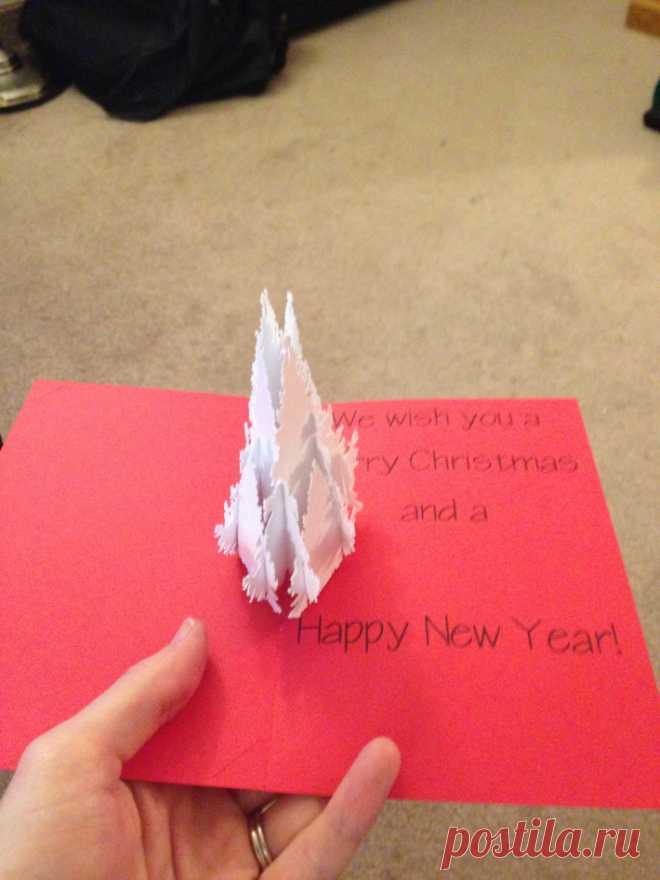 We wish you a
rry Christmas
and a
Happy New Year!
postila.ru